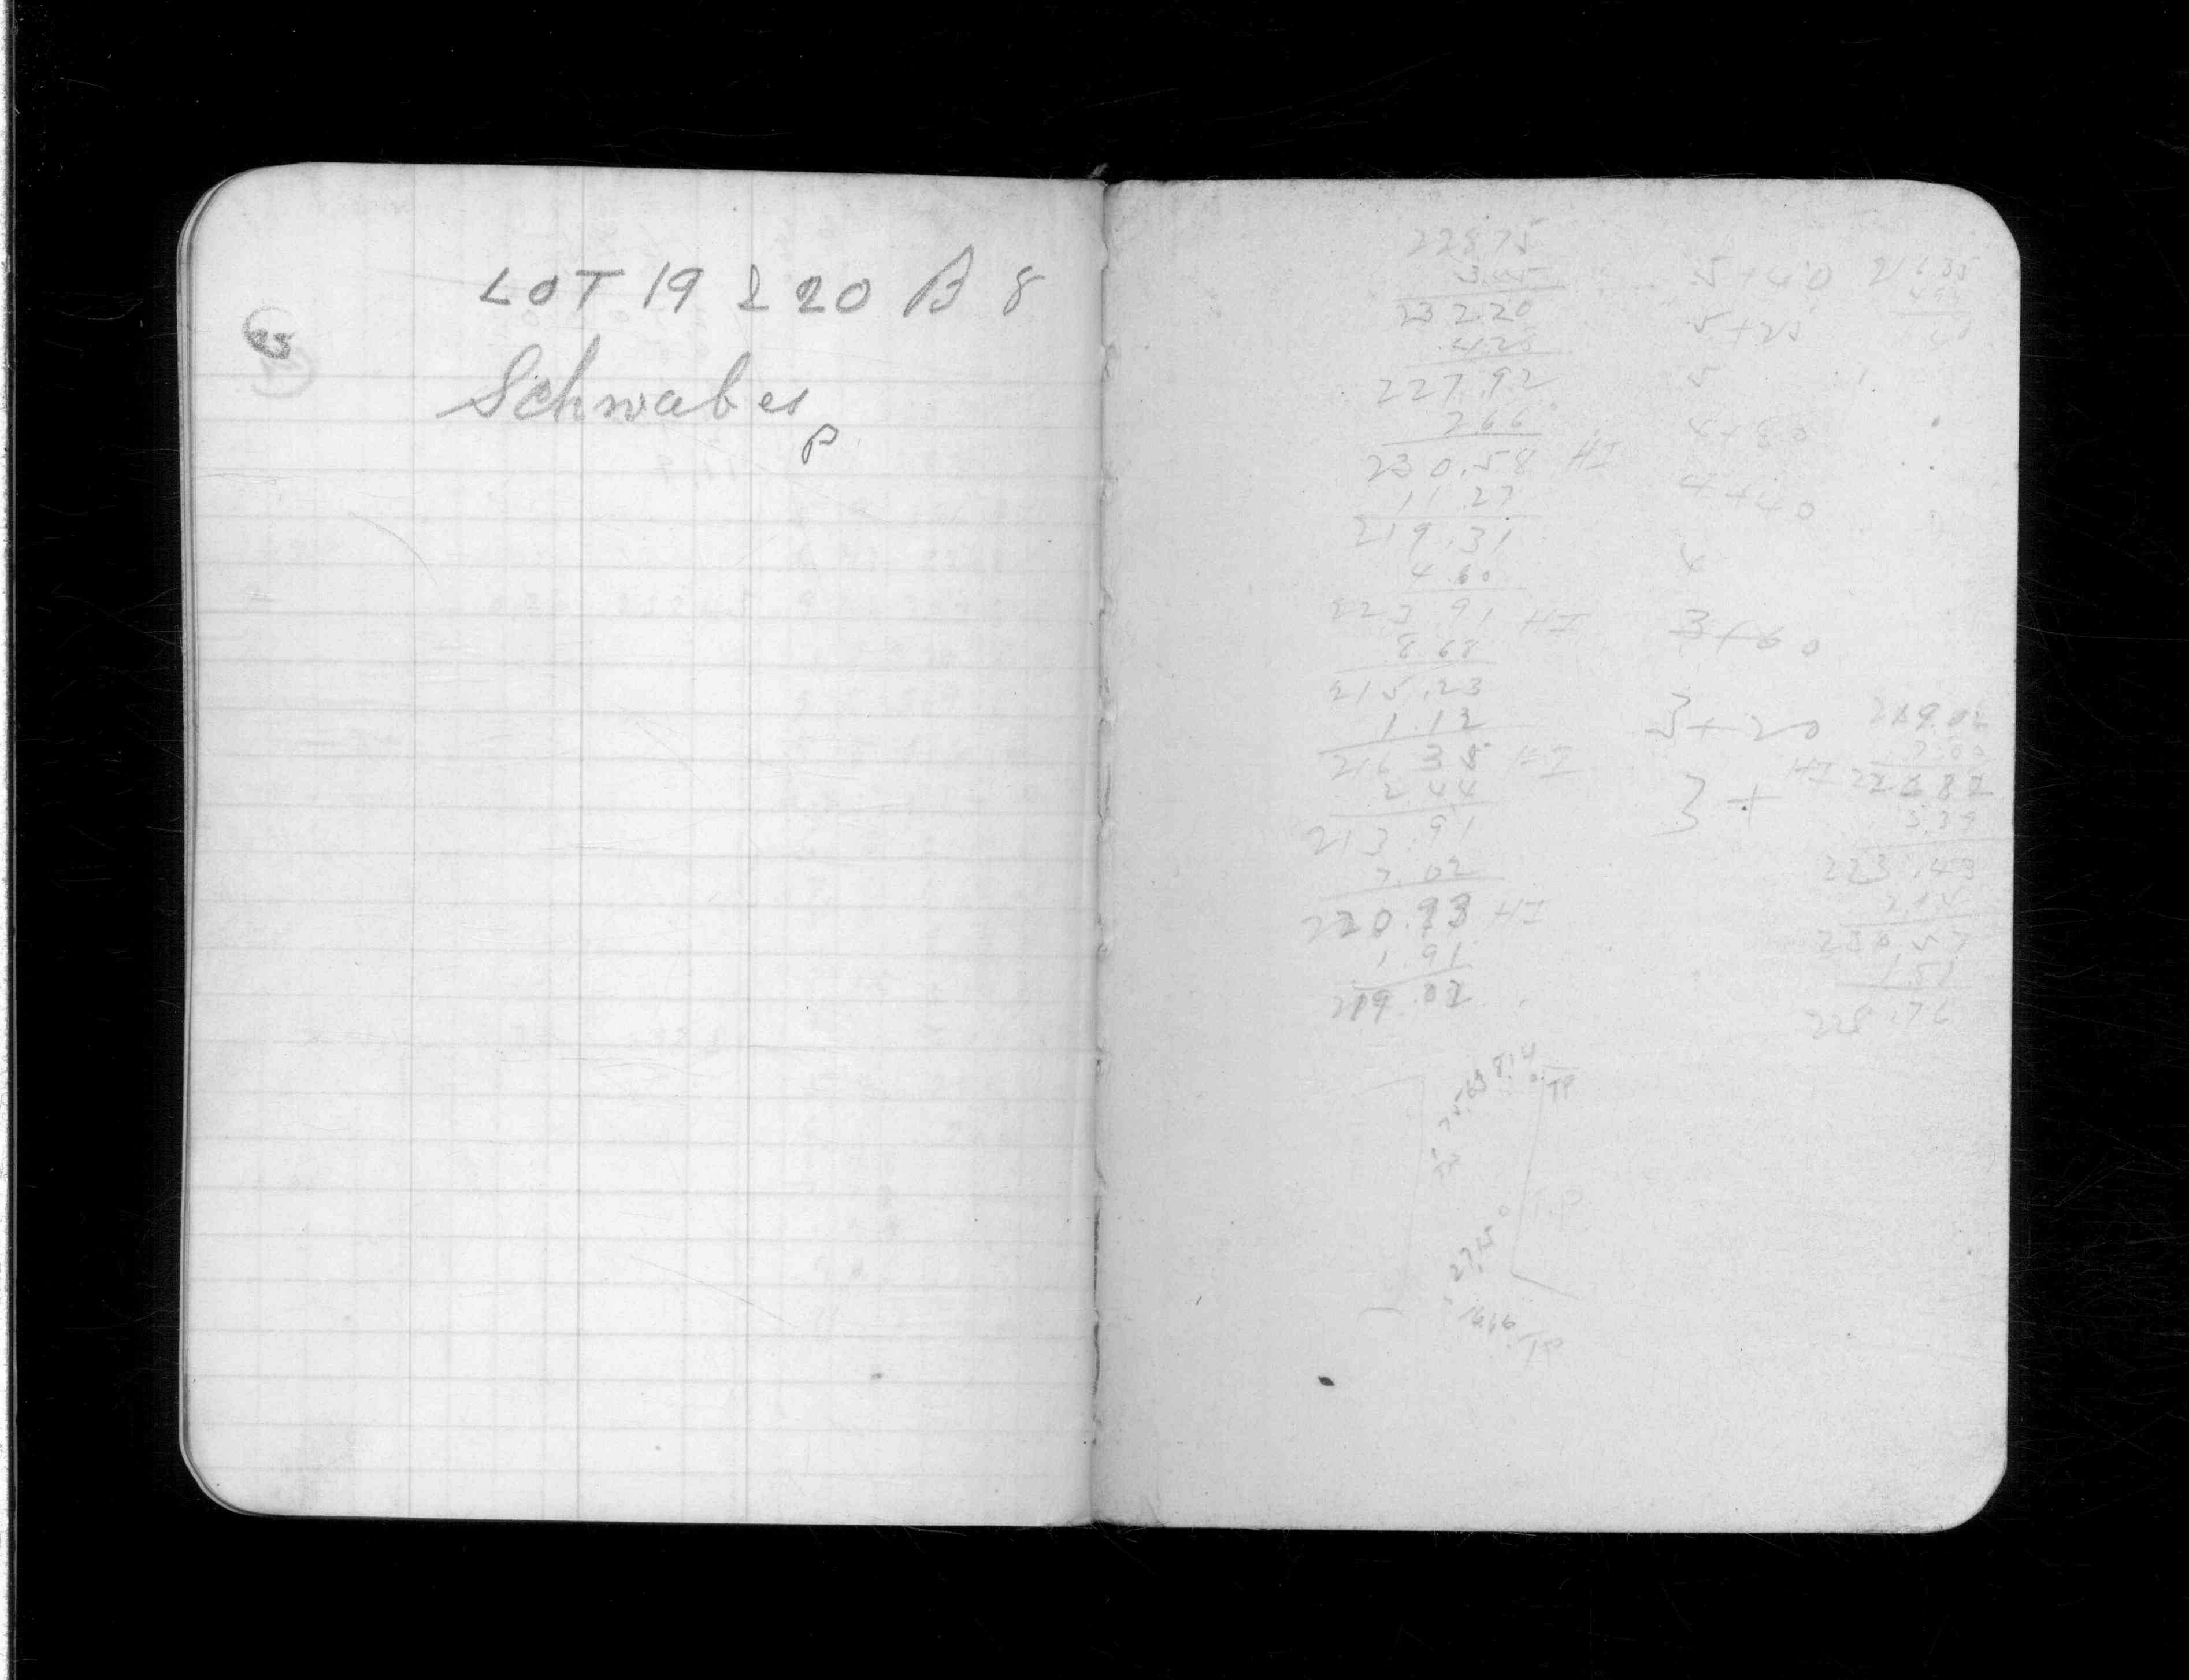 LOT 19 & 20 B 8
Schwabes
P
228.75
3.45
232.20
4.28
227.92
2.66
230.58 HI
11.27
219.31
4.60
223.91 HI
8.68
215.23
1.12
216.35 HI
2.44
213.91
7.02
220.93 HI
1.91
219.02
5+40
5+25
5
4+80
4+40
4
3+60
3+20
3+
216.35
219.02
HI
223.43
228.76
8.14
TP
T.P
27.15
16.66
TP